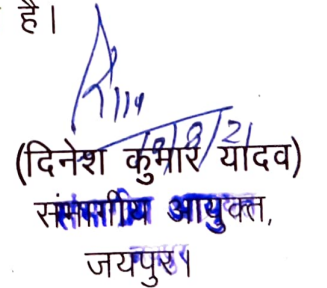 है।
18/8/21
(दिनेश कुमार यादव)
संभागीय आयुक्त,
जयपुर।